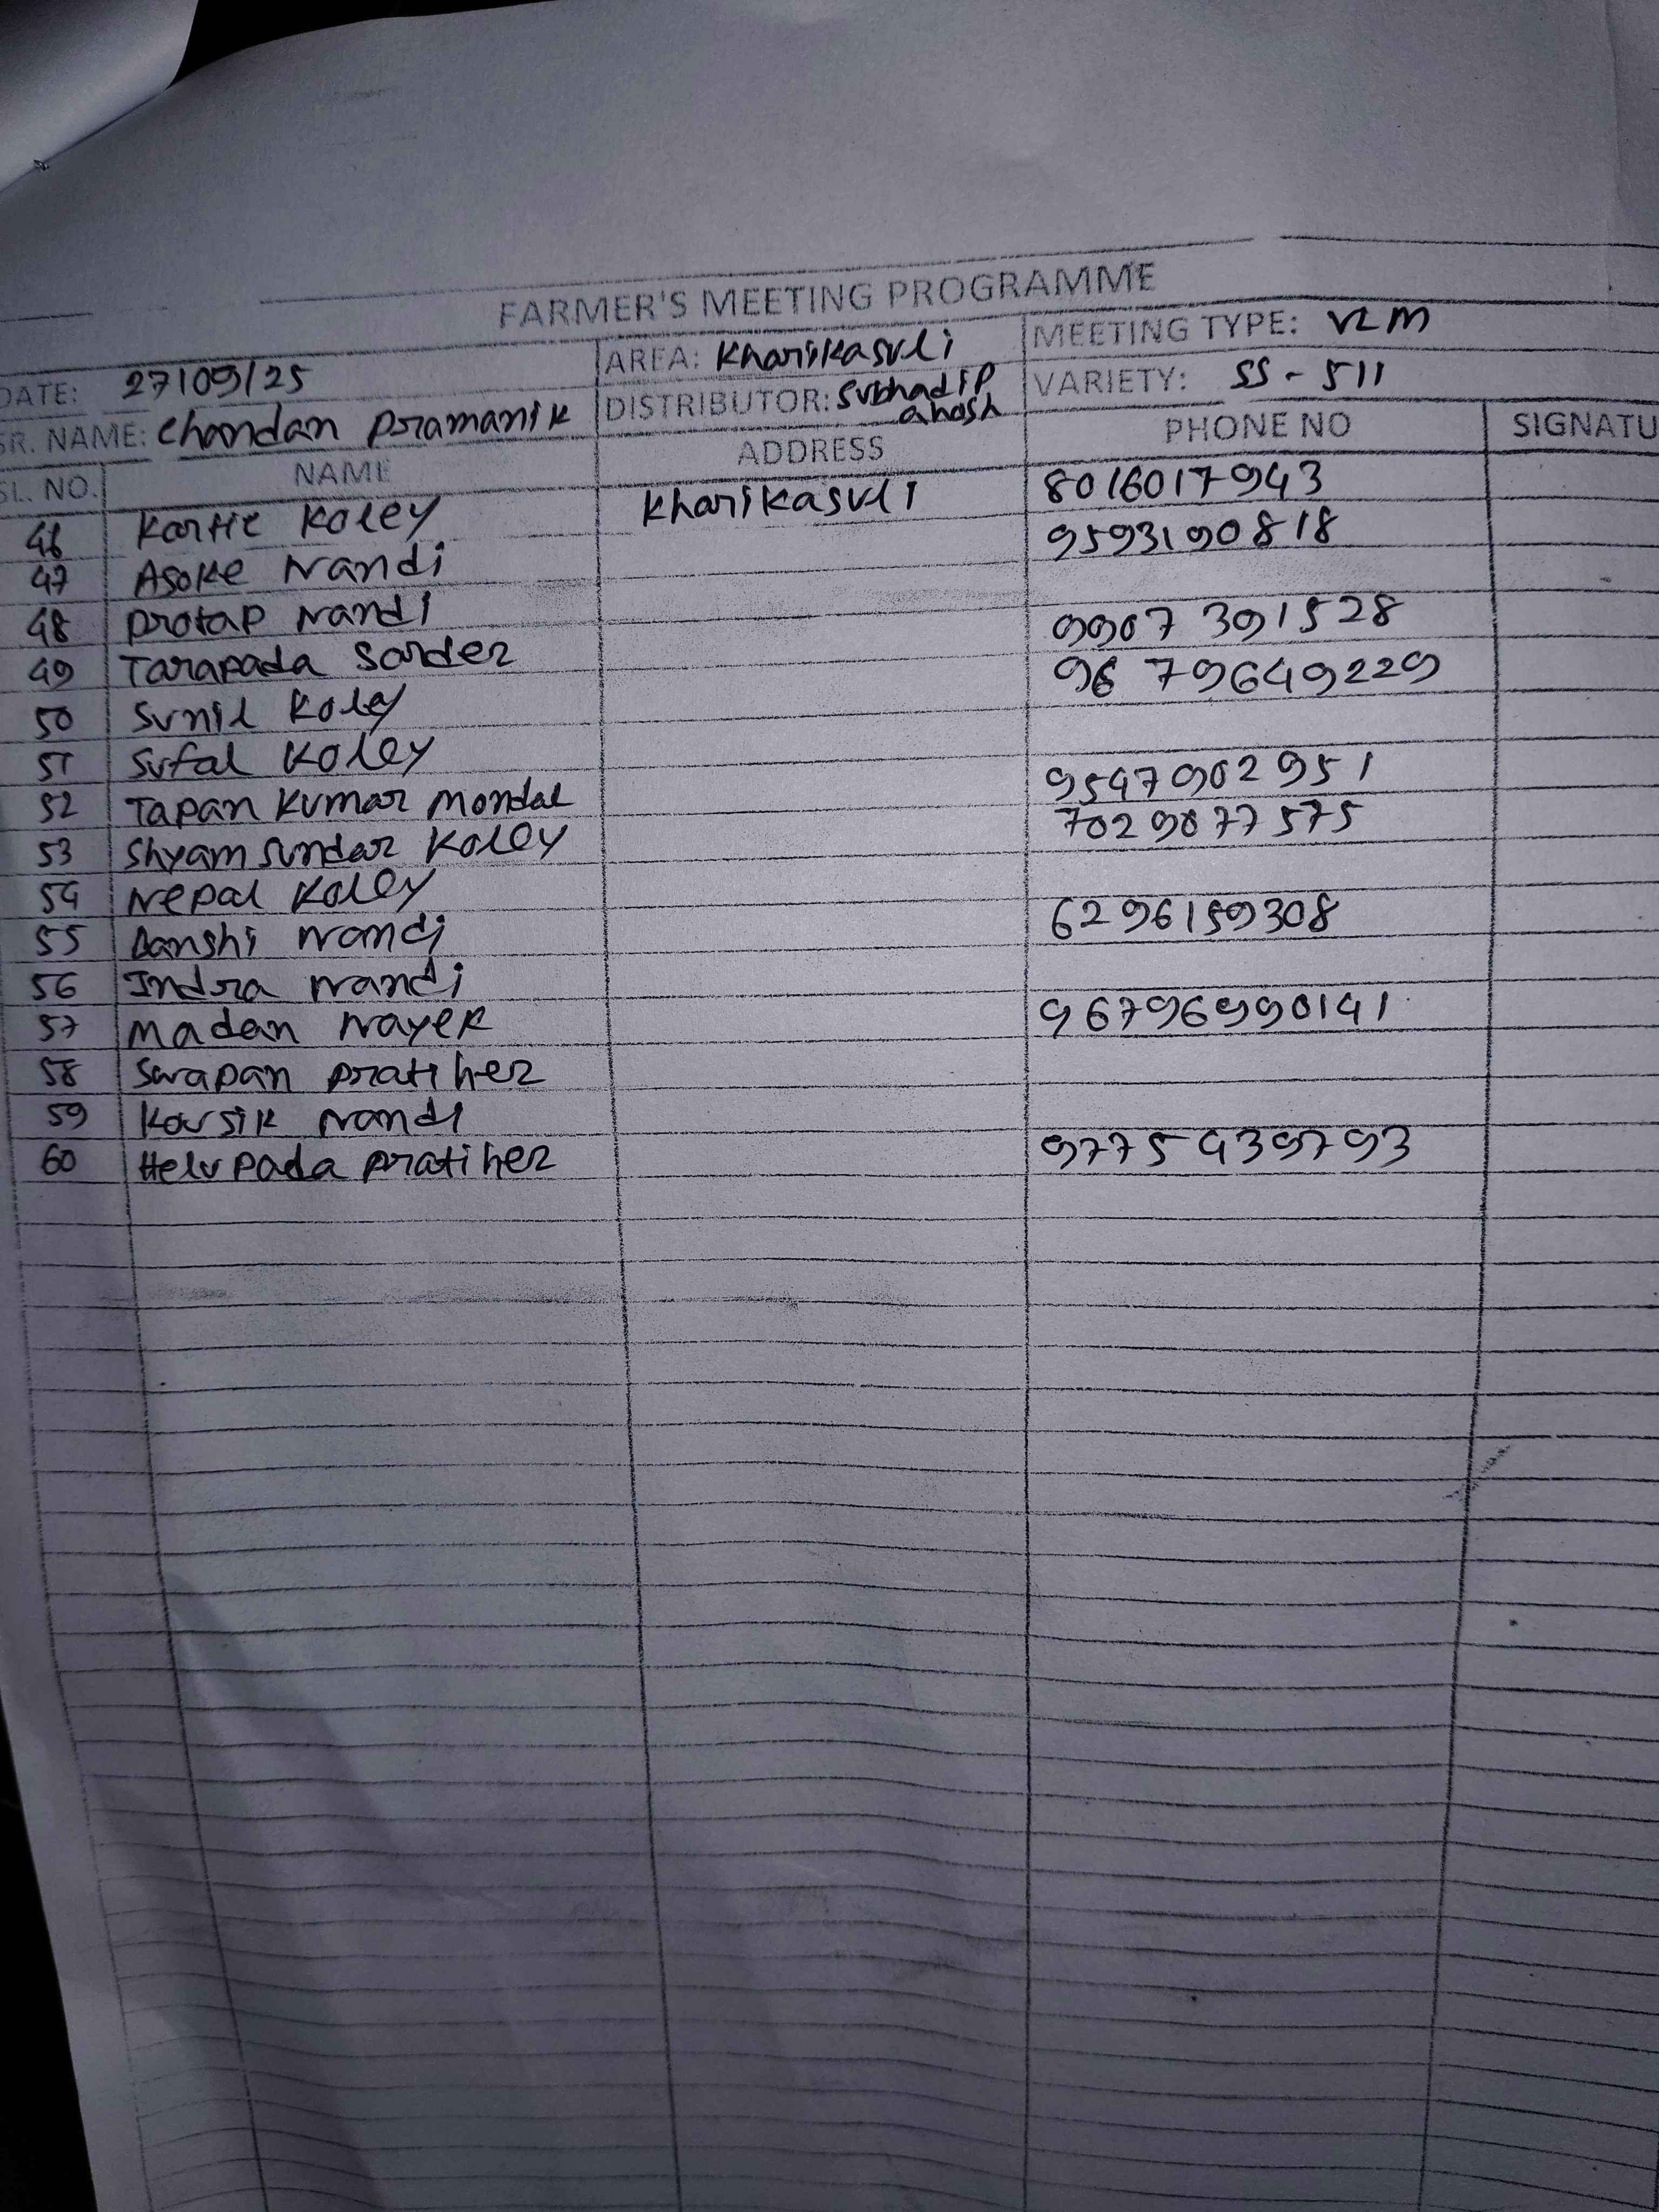 FARMER'S MEETING PROGRAMME
DATE: 27/09/25 AREA: Kharikasuli MEETING TYPE: VLM
SR. NAME: Chandan Pramanik DISTRIBUTOR: Subhadip Ghosh VARIETY: SS - 511
SL. NO. NAME ADDRESS PHONE NO SIGNATU
46 Kartic Koley Kharikasuli 8016017943
47 Asoke Nandi 9593190818
48 Protap Nandi
49 Tarapada Sarder 9907391528
50 Sunil Koley 9679649229
51 Sufal Koley
52 Tapan Kumar Mondal 9547902951
53 Shyam Sundar Koley 7029077575
54 Nepal Koley
55 Banshi Nandi 6296159308
56 Indra Nandi
57 Madan Nayek 96796990141
58 Swapan Pratiher
59 Kousik Nandi
60 Helu Pada Pratiher 9775439793